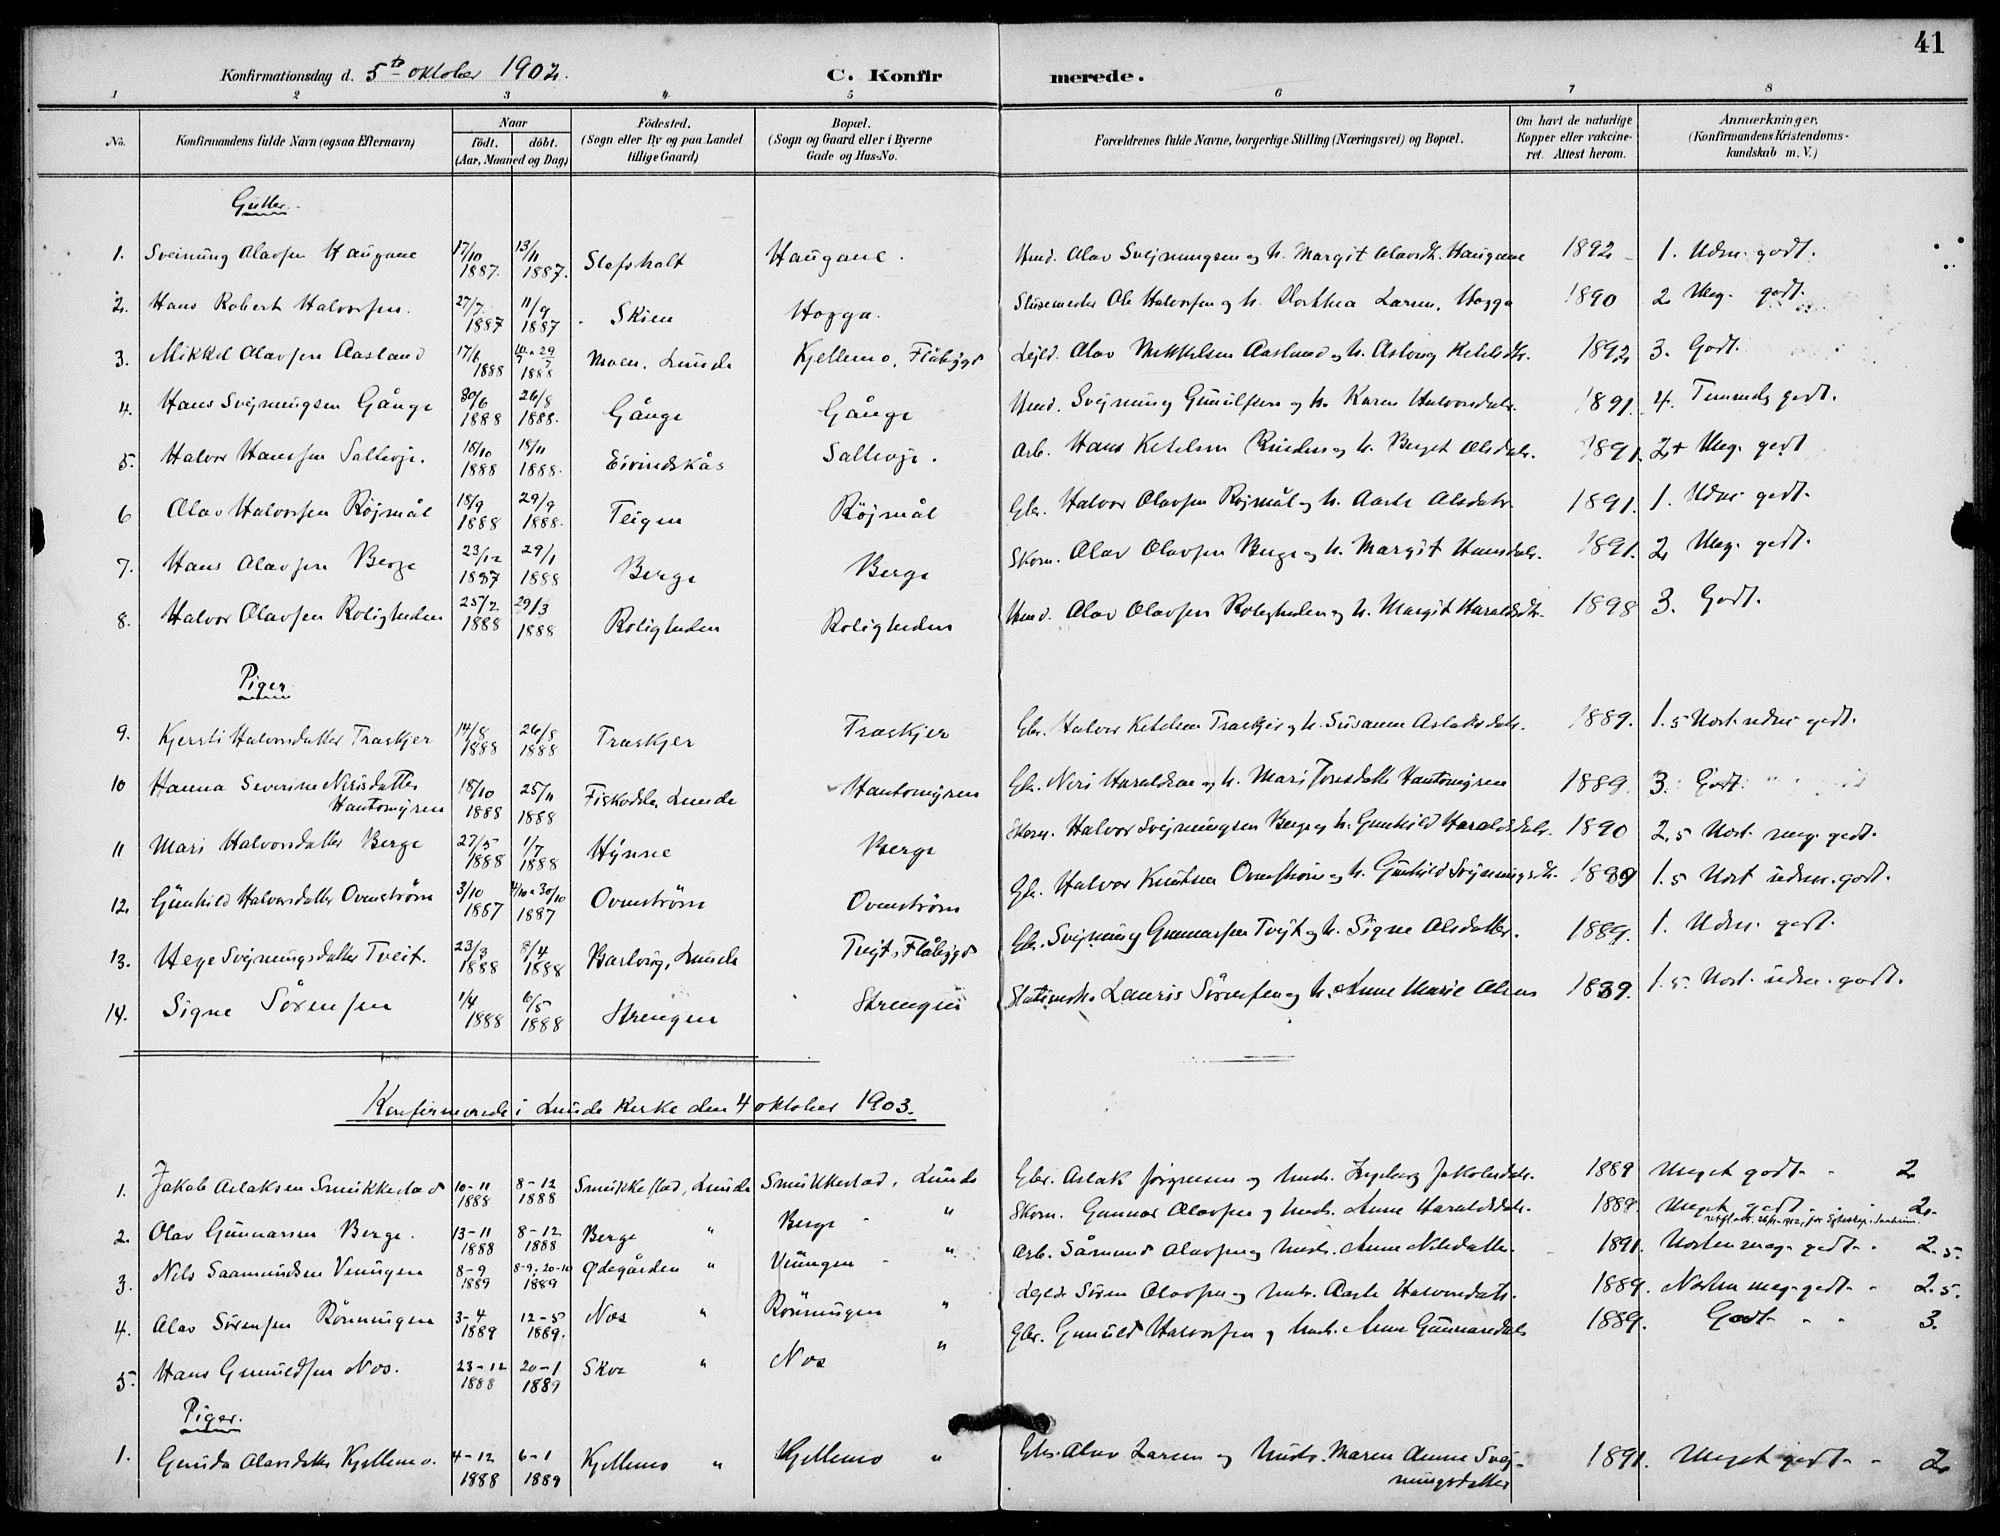 41
Konfirmationsdag d. 5te oktober 1902. C. Konfirmerede.
1 2 3 4 5 6 7 8
No. Konfirmandens fulde Navn (ogsaa Efternavn) Naar født. døbt. (Aar, Maaned og Dag) Fødested. (Sogn eller By og paa Landet tillige Gaard) Bopæl. (Sogn og Gaard eller i Byerne Gade og Hus-No. Forældrenes fulde Navne, borgerlige Stilling (Næringsvei) og Bopæl. Om havt de naturlige Kopper eller vakcineret. Attest herom. Anmærkninger, (Konfirmandens Kristendomskundskab m. V.)
Gutter.
1. Sveinung Olavsen Haugane 17/10 1887. 13/11 1887. Slafsholt Haugane. Olav Svejnungsen og h. Margit Olavsdt. Haugane 1892 1. Udm. godt.
2. Hans Robert Halvorsen. 27/7 1887 11/9 1887 Skien Hogga. Slusemester Ole Halvorsen og h. Dorthea Larsen, Hogga 1890 2 Meg. godt.
3. Mikkel Olavsen Aasland 17/6 1888 29/7 1888 Moen, Lunde Kjellemo, Flåbygd Lejld. Olav Mikkelsen Aasland og h. Aslaug Ketilsdt. 1892 3. Godt.
4. Hans Svejnungsen Gånge 30/6 1888 26/8 1888. Gånge Gånge Svejnung Gunulfsen og h. Karen Halvorsdatr. 1891. 4. Temmelig godt.
5. Halvor Hansen Saltevje. 18/10 1888 18/11 1888. Eivindskås Saltevje. Arb. Hans Ketilsen og h. Berget Olsdatr. 1891. 2+ Meg. godt
6 Olav Halvorsen Röjmål 18/9 1888 29/9 1888. Teigen Röjmål Gbr. Halvor Olavsen Röjmål og h. Aaste Olsdatr. 1891. 1. Udm. godt.
7. Hans Olavsen Berge 23/12 1887 29/1 1888 Berge Berge Skom. Olav Olavsen Berge og h. Margit Hansdatr. 1891. 2 Meg. godt.
8. Halvor Olavsen Roligheden 25/2 1888 29/3 1888 Roligheden Roligheden Olav Olavsen Roligheden og h. Margit Haraldsdtr. 1898 3. Godt.
Piger
9. Kjersti Halvorsdatter Traskjer 14/8 1888 26/8 1888 Traskjer Traskjer Gbr. Halvor Ketilsen Traskjer og h. Susanne Aslaksdatr. 1889. 1.5 Næst udm. godt.
10 Hanna Severine Nirisdatter Hantomyren 18/10 1888 25/11 1888 Fiskodden, Lunde Hantomyren Gbr. Niri Haraldsen og h. Mari Jonsdatter Hantomyren 1889. 3. Godt.
11 Mari Halvorsdatter Berge 27/5 1888 1/7 1888 Hynne Berge Skom. Halvor Svejnungsen Berge og h. Gunhild Haraldsdatr. 1890 2.5 Næst meg. godt.
12. Gunhild Halvorsdatter Ovnström 3/10 1887 4/10 - 30/10 1887 Ovnström Ovnström Gbr. Halvor Knutsen Ovnström og h. Gunhild Svejnungsdt. 1889 1.5 Næst udm. godt.
13. Hege Svejnungsdatter Tveit. 23/3 1888 8/4 1888 Lunde Tvejt, Flåbygd Gbr. Svejnung Gunnarsen Tvejt og h. Signe Olsdatter. 1889. 1. Udm. godt.
14. Signe Sörensen 1/4 1888 6/5 1888 Strengen Strengen Lauris Sörensen og h. Anne Marie Olsen 1889. 1.5. Næst udm. godt.
Konfirmerede i Lunde Kirke den 4 oktober 1903.
1. Jakob Aslaksen Smukkestad 10-11 1888 8-12 1888 Smukkestad, Lunde Smukkestad, Lunde Gbr. Aslak Jørgensen og hustr. Ingeborg Jakobsdatr. 1889 Meget godt - 2
2. Olav Gunnarsen Berge. 13-11 1888 8-12 1888 Berge " Berge " Skom. Gunnar Olavsen og hustr. Anne Haraldsdatr. 1889. Meget godt - 2.
3. Nils Saamundsen Veungen 8-9 1889 8-9, 20-10 1889 Ødegården " Veungen " Arb. Såmund Olavsen og hustr. Anne Nilsdatter. 1891. Næsten meg. godt - 2.5.
4. Olav Sörensen Rönningen 3-4 1889 12-5 1889. Næs " Rönningen " Lejld. Sören Olavsen og hustr. Aaste Halvorsdatr. 1889. Næsten meg. godt - 2.5.
5. Hans Gunuldsen Næs. 23-12 1888 20-1 1889 Skoe " Næs " Gbr. Gunuld Halvorsen og hustr. Anne Gunnarsdatr 1889. Godt - 3.
Piger.
1. Gunda Olavsdatter Kjellemo. 4-12 1888 6-1 1889 Kjellemo " Kjellemo " Gbr. Olav Larsen og hustr. Maren Anne Svejnungsdatter 1891. Meget godt - 2